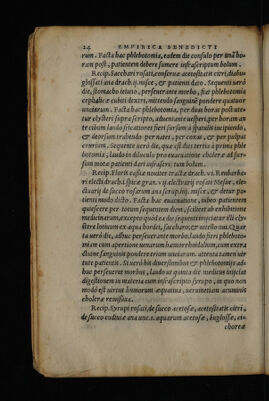 24 EMPIRICA BENEDICTI
rum. Facta hac phlebotomia, eodem die consulo per unā ho-
ram post, patientem debere sumere infrascriptum bolum.
Recip. Sacchari rosati, conseruæ acetositatis citri, diabu-
glossati ana drach.ij. misce, & patienti dato. Sequenti uerò
die, stomacho ieiuno, perseuerante morbo, fiat phlebotomia
cephalicæ cubiti dextri, mittendo sanguinē pondere quatuor
unciarum. Facta hac phlebotomia, per duas horas postute-
tur clysteri supra scripto, aduentante uesperi, per horam an
te cibum laudo fricationes fieri sursum à spatulis incipiendo,
& deorsum trahendo per nates, per coxas, & per pulpas
crurum. Sequenti uerò die, quæ est dies tertia à prima phle
botomia, laudo in diluculo pro euacuatione choleræ ad sur-
sum motæ patienti dari infrascriptum bolum.
Recip. Floris cassiæ nouiter tractæ drach.vi. Rheubarba-
ri electi drach.i. spicæ gran.vij electuarij rosati Mesue, elec-
tuarij de succo rosarum ana scrup.ij. misce, & detur pa-
tienti modo dicto. Facta hac euacuatione, iubeo patientem
quiescere per totum sequentem diem, scilicet ab exhibitione
medicinarum, excepto quòd ea die sequenti inijciatur ei cly-
stere lotiuum ex aqua hordei, saccharo, & aceto. Quar
ta uerò die, adhuc perseuerante morbo laudo fieri phleboto-
miam cum apertione uenarum hæmorrhoidalium, cum extra
ctione sanguinis pondere trium unciarum, attenta tamen uir
tute patientis. Si uerò his diuersionibus & phlebotomijs ad-
huc perseueret morbus, laudo ut quinta die medicus inijciat
digestionem in materia cum infrascripto syrupo, in quo non
modò est uirtus humorum æquatiua, uerumetiam acuminis
choleræ remissiua.
Recip. Syrupi rosati, de succo acetosæ, acetositatis citri,
de succo endiuiæ ana unc.s. aquarum acetosæ, buglossæ, ci-
choreæ